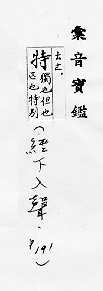 彙音寶鑑
去之。
特
獨也但也
迄也特別
(經下入聲. P191)